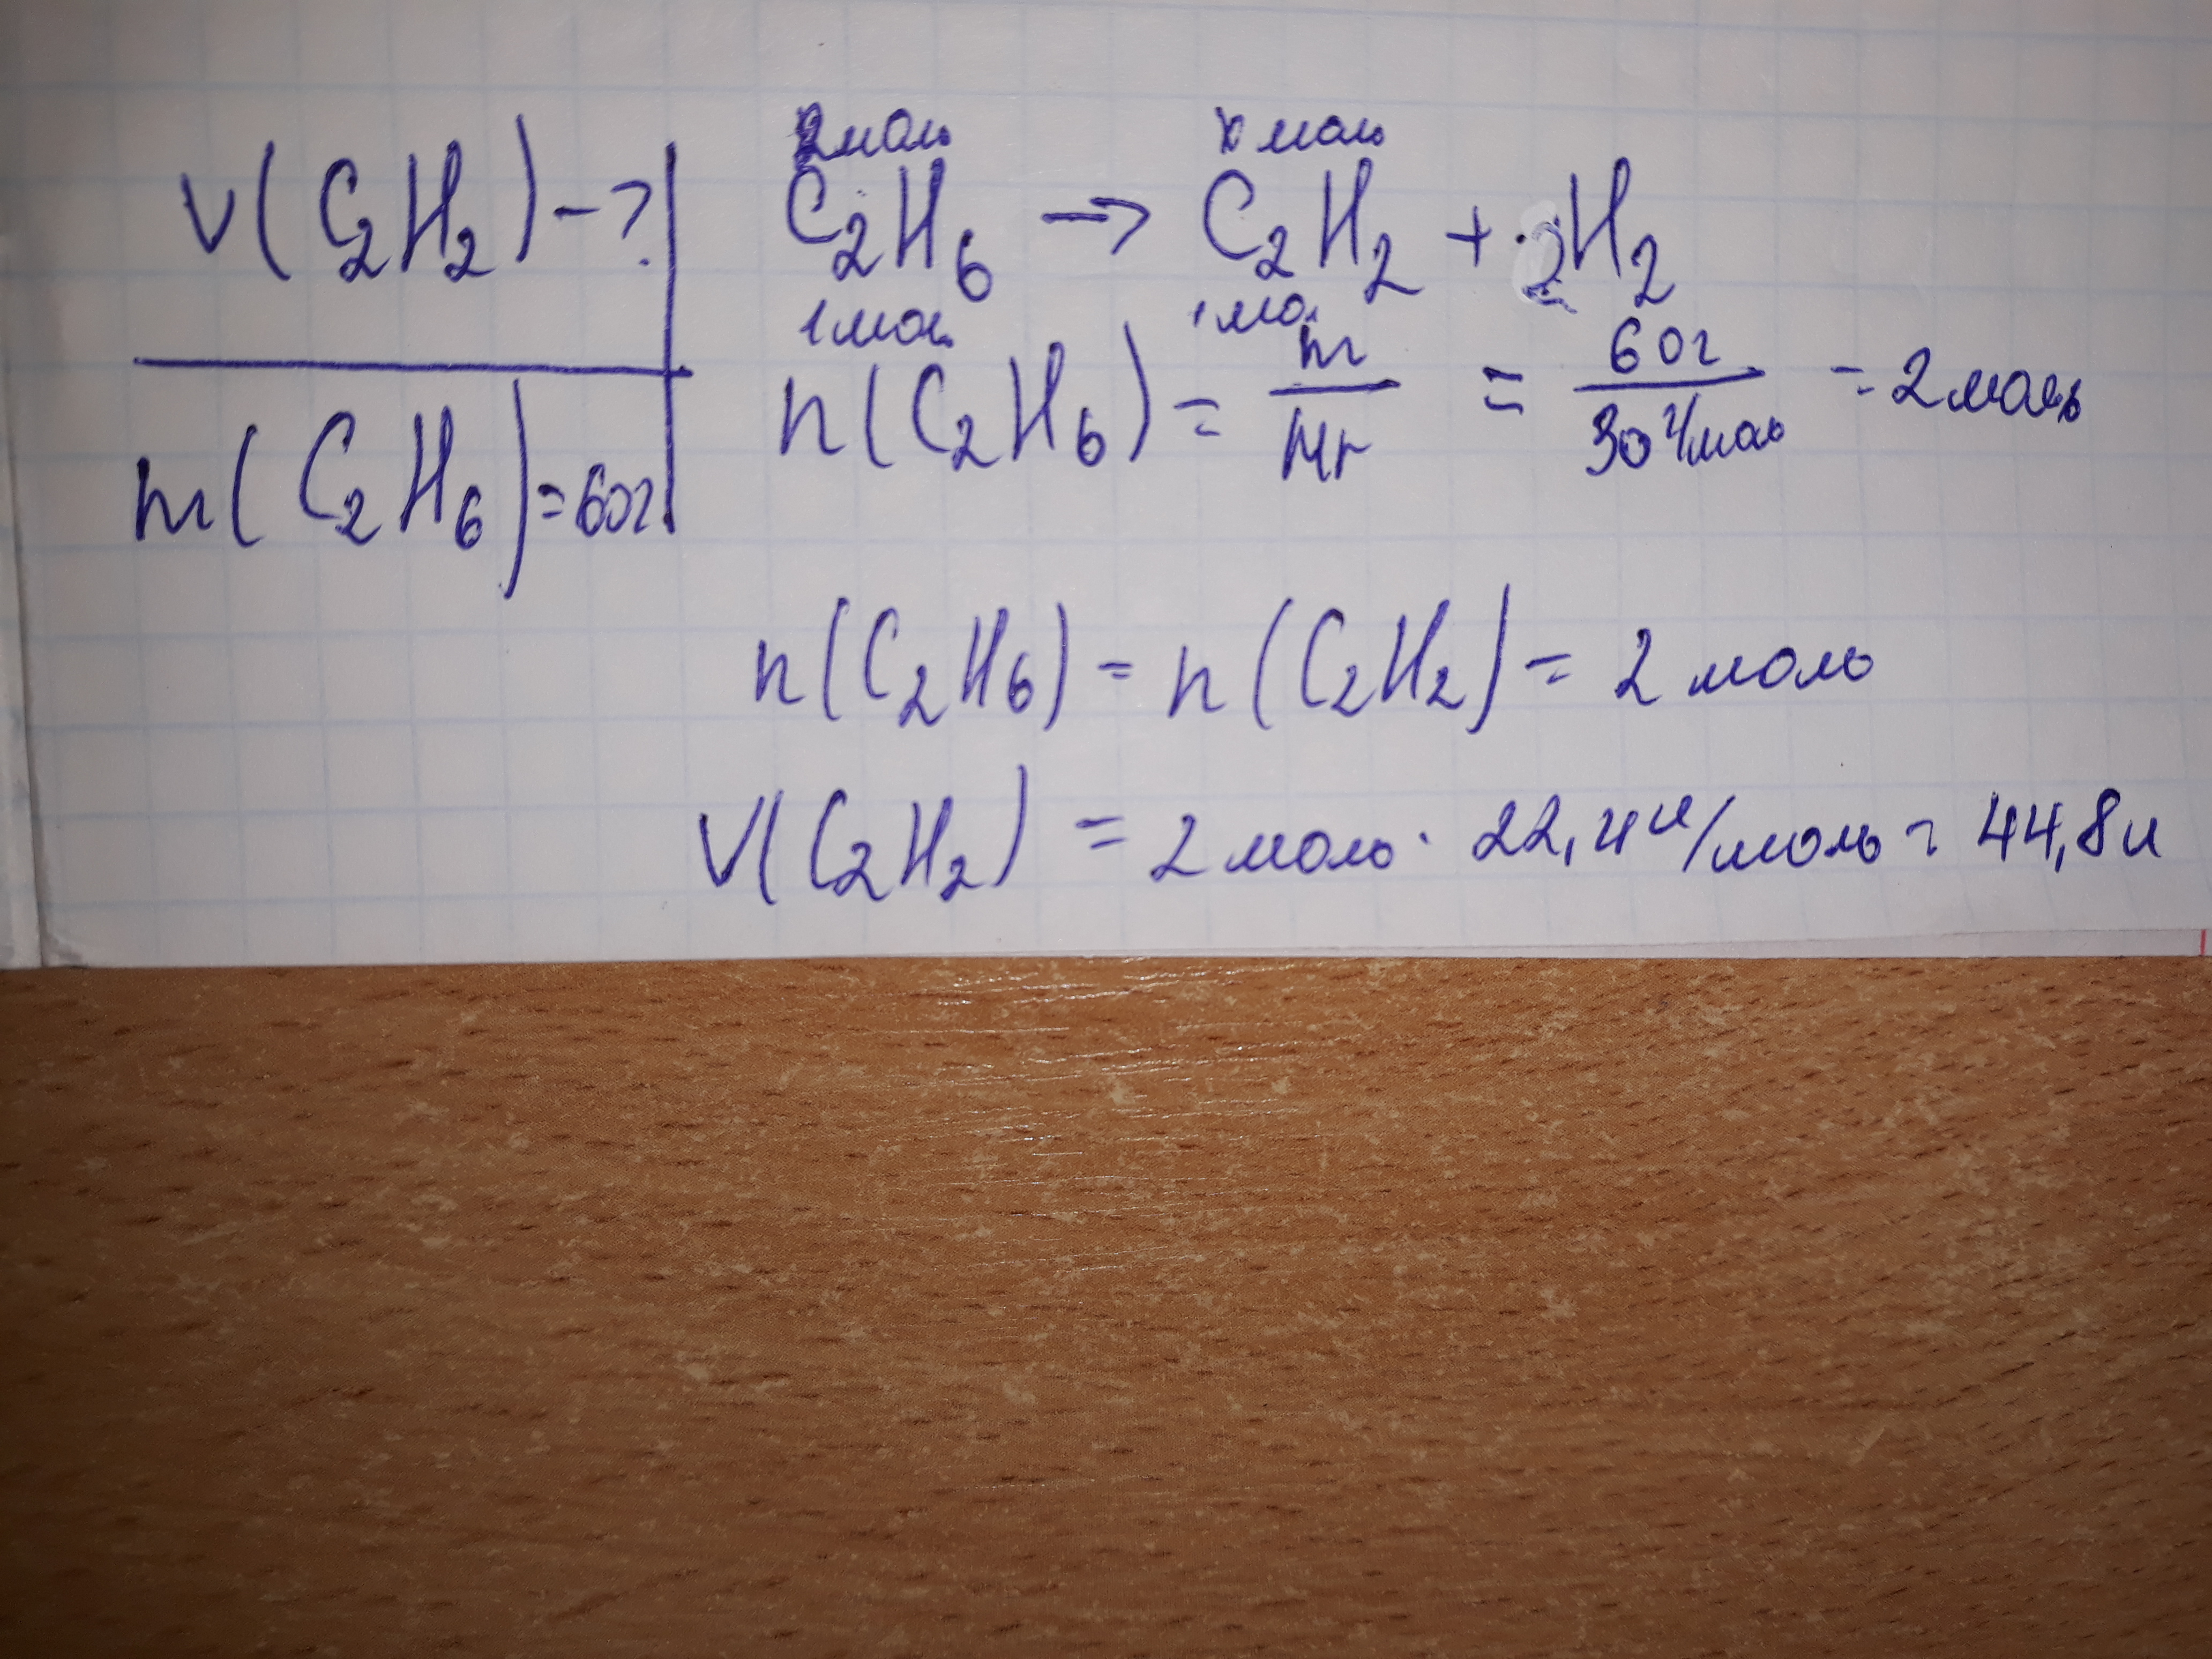 V(C₂H₂) - ?
m(C₂H₆) = 60г
2моль х моль
C₂H₆ → C₂H₂ + 2H₂
1мол 1мол
n(C₂H₆) = m/Mr = 60г/30г/моль = 2моль
n(C₂H₆) = n(C₂H₂) = 2 моль
V(C₂H₂) = 2 моль · 22,4л/моль = 44,8л